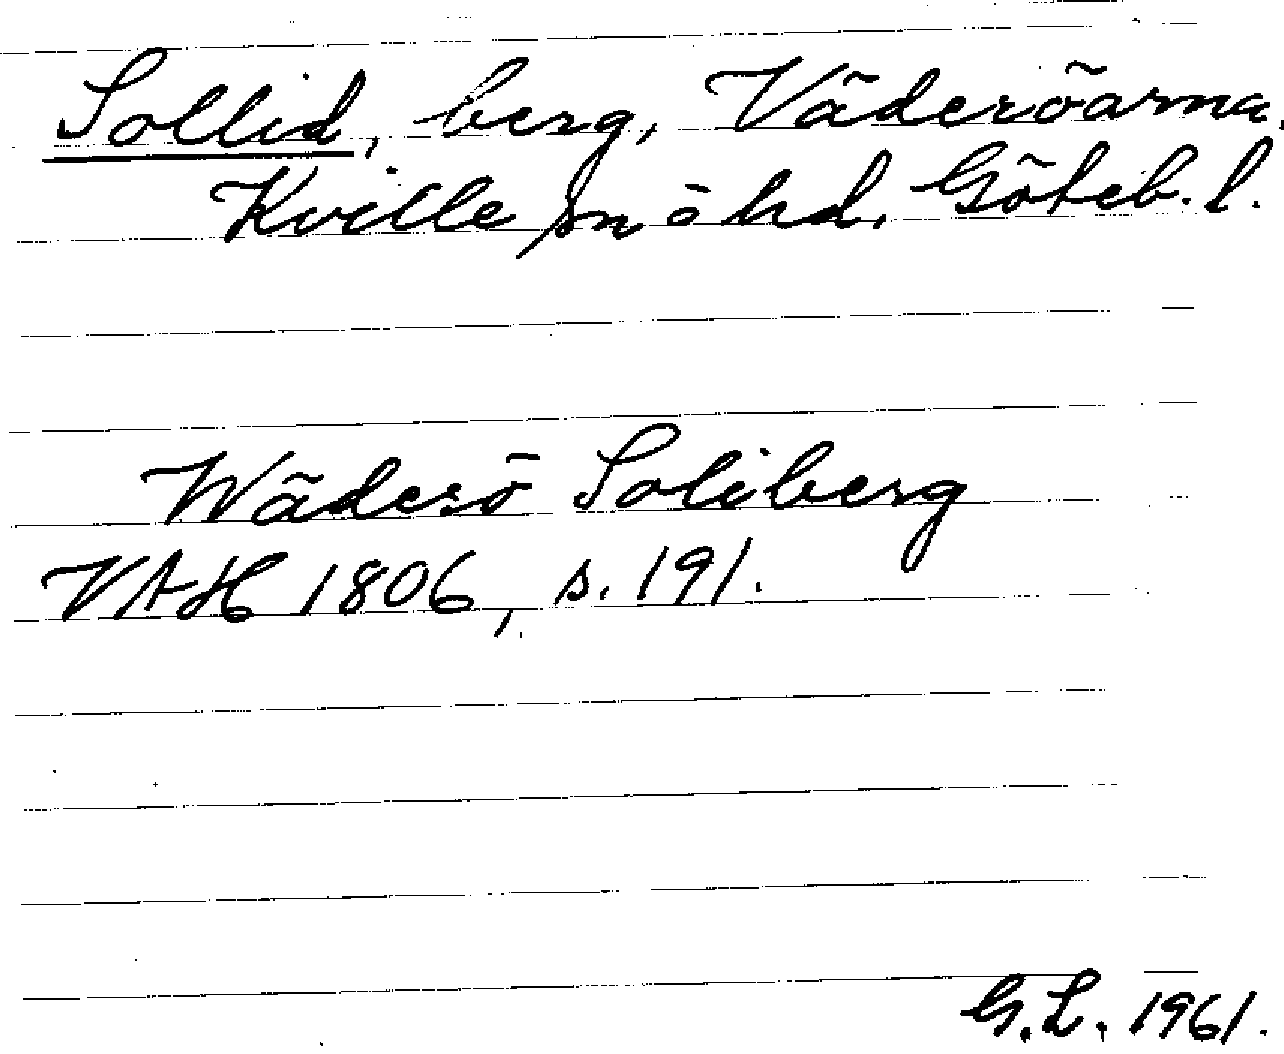 Sollid, berg, Väderöarna,
Kville sn o hd, Göteb. l.
Wäderö Soliberg
VAH 1806, s. 191.
G.L. 1961.